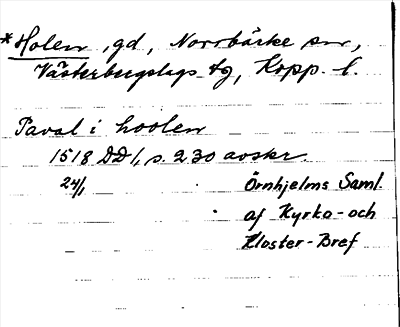 *Holen, gd, Norrbärke sn,
Västerbergslags tg, Kopp. l.
Paval i hoolen
1518 DD 1, s. 230 avskr.
24/1 Örnhjelms Saml.
af Kyrko- och
Kloster-Bref